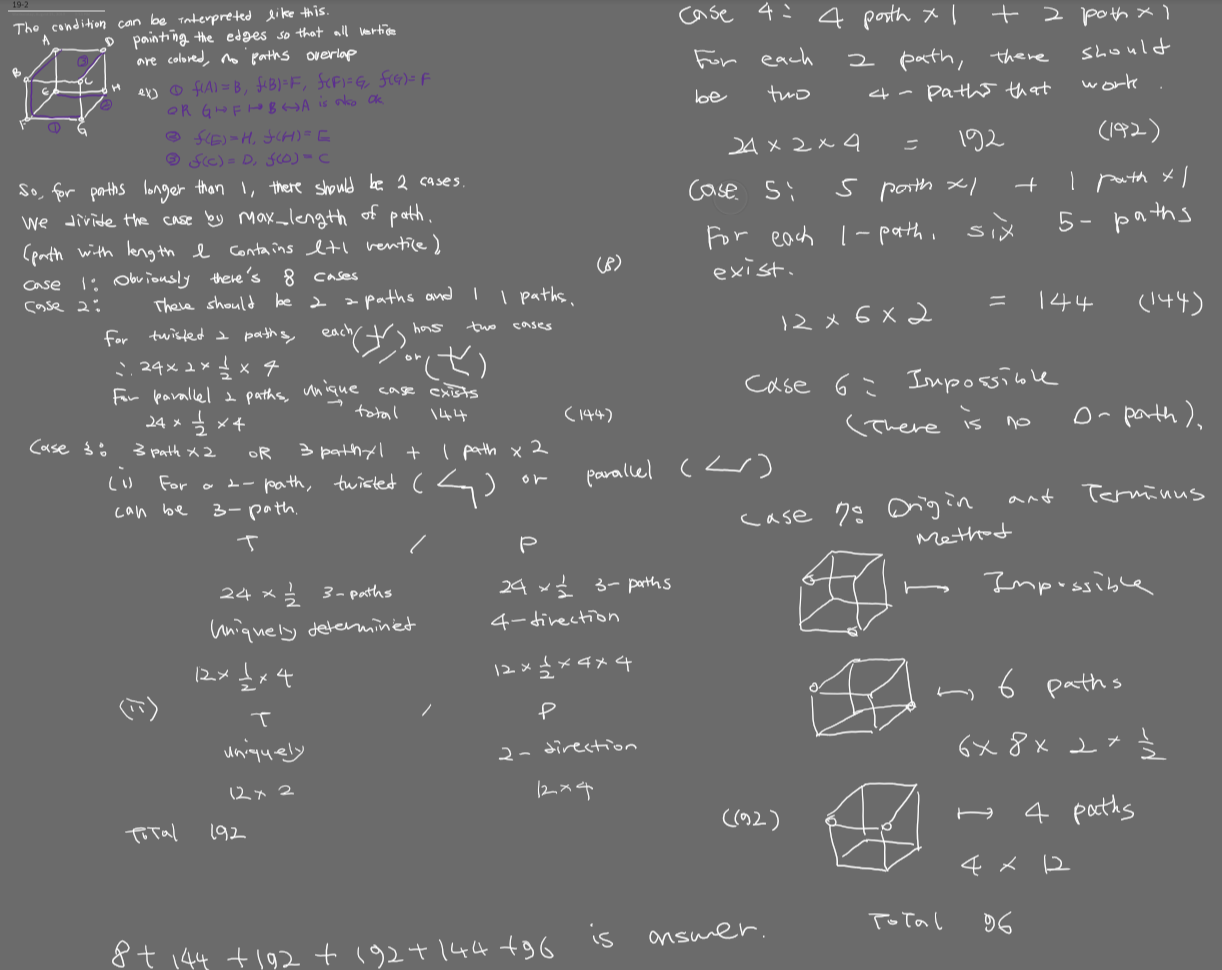 19-2
The condition can be interpreted like this.
painting the edges so that all vertice
are colored, no paths overlap
A
D
B
C
E
H
F
G
①
②
③
ex) ① f(A)=B, f(B)=F, f(F)=G, f(G)=F
OR G↦F↦B↔A is also ok
② f(E)=H, f(H)=E
③ f(C)=D, f(D)=C
So, for paths longer than 1, there should be 2 cases.
We divide the case by max_length of path.
(path with length l contains l+1 ventice)
case 1: Obviously there's 8 cases
(8)
Case 2: There should be 2 2 paths and 1 1 paths.
For twisted 2 paths, each ( ) has two cases
or ( )
∴ 24 × 2 × 1/2 × 4
For parallel 2 paths, unique case exists
24 × 1/2 × 4
→ total 144
(144)
Case 3: 3 path × 2 OR 3 path×1 + 1 path × 2
(i) For a 2-path, twisted ( ) or parallel ( )
can be 3-path.
T / P
24 × 1/2 3-paths
24 × 1/2 3-paths
Uniquely determined
4-direction
12 × 1/2 × 4
12 × 1/2 × 4 × 4
(ii) T / P
uniquely
2-direction
12 × 2
12 × 4
Total 192
(192)
Case 4: 4 path × 1 + 2 path × 1
For each 2 path, there should
be two 4-paths that work.
24 × 2 × 4 = 192 (192)
Case 5: 5 path ×1 + 1 path ×1
For each 1-path, six 5-paths
exist.
12 × 6 × 2 = 144 (144)
Case 6: Impossible
(There is no 0-path).
Case 7: Origin and Terminus
Method
↦ Impossible
↦ 6 paths
6 × 8 × 2 × 1/2
↦ 4 paths
4 × 12
Total 96
8 + 144 + 192 + 192 + 144 + 96 is answer.